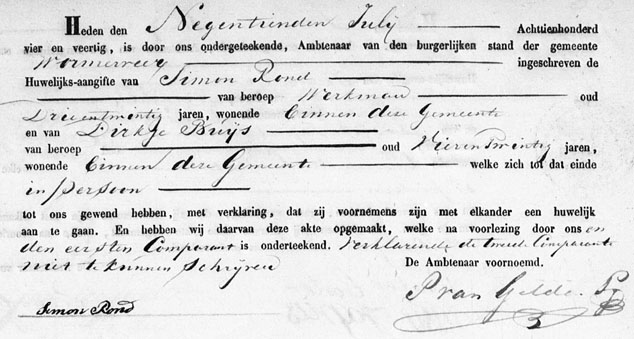 Heden den Negentienden July Achttienhonderd
vier en veertig, is door ons ondergeteekende, Ambtenaar van den burgerlijken stand der gemeente
Wormerveer ingeschreven de
Huwelijks-aangifte van Simon Rond
van beroep Werkman oud
Drieentwintig jaren, wonende binnen deze Gemeente
en van Dirkje Buijs
van beroep oud Vierentwintig jaren,
wonende binnen deze Gemeente welke zich tot dat einde
in persoon
tot ons gewend hebben, met verklaring, dat zij voornemens zijn met elkander een huwelijk
aan te gaan. En hebben wij daarvan deze akte opgemaakt, welke na voorlezing door ons en
den eersten Comparant is onderteekend. Verklarende de tweede Comparante
niet te kunnen schrijven
De Ambtenaar voornoemd.
P van Gelder
Simon Rond